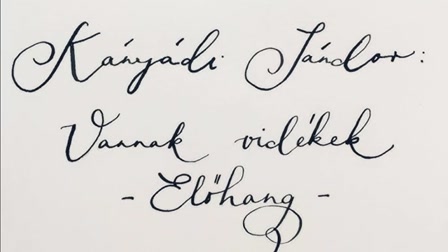 Kányádi Sándor:
Vannak vidékek
- Előhang -